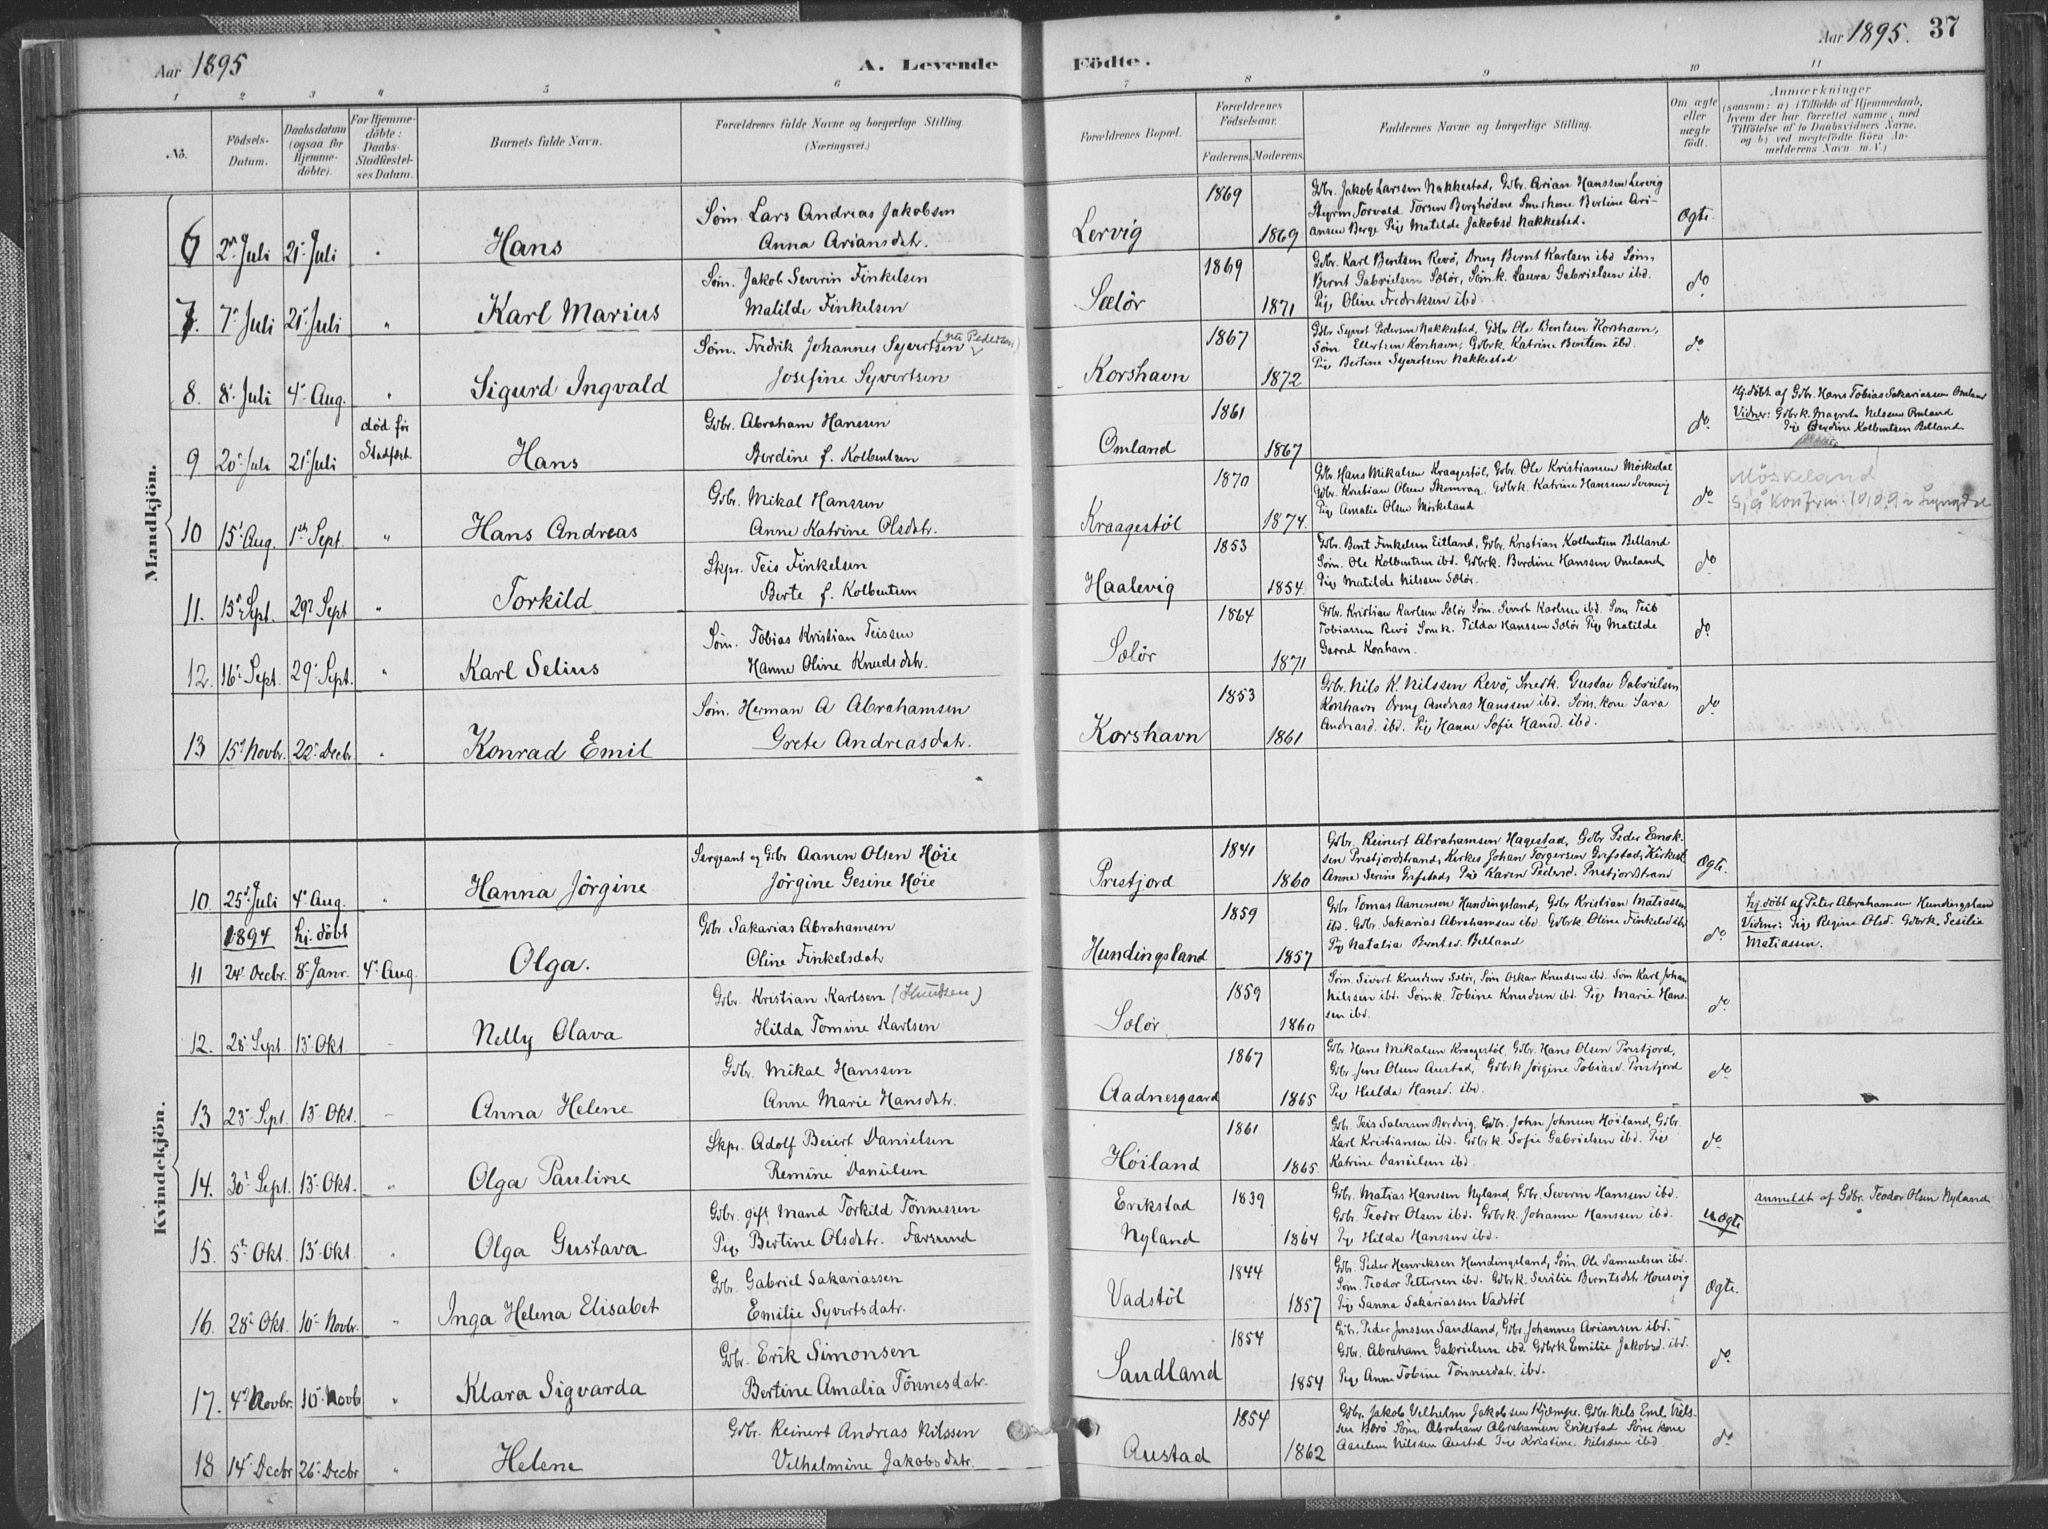 Aar 1895
A. Levende Födte.
Aar 1895. 37
1 2 3 4 5 6 7 8 9 10 11
No.
Födsels-Datum.
Daabsdatum (ogsaa for Hjemme-döbte).
For Hjemme-döbte: Daabs-Stadfæstel-ses Datum.
Barnets fulde Navn.
Forældrenes fulde Navne og borgerlige Stilling. (Næringsvei.)
Forældrenes Bopæl.
Forældrenes Födselsaar.
Faderens. Moderens.
Faddernes Navne og borgerlige Stilling.
Om ægte eller uægte födt.
Anmærkninger
(saasom: a) i Tilfælde af Hjemmedaab, hvem der har forrettet samme, med Tilföielse af to Daabsvidners Navne, og b) ved uægtefödte Börn An-melderens Navn m. V.)
Mandkjön.
6 2' Juli 21' Juli " Hans
Søm. Lars Andreas Jakobsen
Anna Ariansdtr.
Lervig 1869 1869
Gdbr. Jakob Larssen Nakkestad, Gdbr. Arian Hanssen Lervig
Styrm Torvald Torsen Berghødene Smedkone Bertine Ari-
ansen Berge Pig Matilde Jakobsd. Nakkestad.
Ægte
7. 7' Juli 21' Juli " Karl Marius
Søm. Jakob Severin Finkelsen
Matilde Finkelsen
Sælør 1869 1871
Gdbr. Karl Bentsen Revø, Dreng Bernt Karlsen ibd Søm.
Bernt Gabrielsen Sælør, Sømk. Laura Gabrielsen ibd.
Pig. Oline Fredriksen ibd.
do
8. 8' Juli 4' Aug. " Sigurd Ingvald
Søm. Fredrik Johannes Syvertsen (nu Pedersen)
Josefine Syvertsen
Korshavn 1867 1872
Gdbr Syvert Pedersen Nakkestad, Gdbr Ole Bentsen Korshavn,
Søm Ellertsen Korshavn, Gdbrk. Katrine Bentsen ibd.
Pig Bertine Syvertsen Nakkestad
do
9 20' Juli 21' Juli død før Stadfæst. Hans
Gdbr. Abraham Hanssen
Berdine f. Kolbentsen
Omland 1861 1867
do
Hj.døbt af Gdbr. Hans Tobias Sakariassen Omland
Vidner: Gdbrk. Magreta Nilssen Omland
Pig Berdine Kolbentsen Belland
10 15' Aug. 1ste Sept. " Hans Andreas
Gdbr. Mikal Hanssen
Anne Katrine Olsdtr.
Kraagestøl 1870 1874.
Gdbr Hans Mikalsen Kraagestøl, Gdbr. Ole Kristiansen Møskedal
Gdbr. Kristian Olsen Skomrag. Gdbrk. Katrine Hanssen
Pig Amalie Olsen Møskeland
do
Møskeland
Sjå Konfirm: 1909 i Lyngdal
11. 15' Sept. 29' Sept " Torkild
Skpr. Teis Finkelsen
Berte f. Kolbentsen
Haalevig 1853 1854.
Gdbr. Bent Finkelsen Eitland, Gdbr. Kristian Kolbentsen Belland
Søm. Ole Kolbentsen ibd. Gdbrk. Berdine Hanssen Omland
Pig Matilde Nilssen Sælør.
do
12. 16' Sept. 29' Sept. " Karl Selius
Søm. Tobias Kristian Teissen
Hanne Oline Knudsdtr.
Sælør 1864 1871
Gdbr. Kristian Karlsen Sælør Søm. Severt Karlsen ibd. Søm Teis
Tobiassen Revø Sømk. Tilda Hanssen Sælør Pig Matilde
Korshavn.
do
13 15' Novbr. 22' Decbr " Konrad Emil
Søm. Herman A Abrahamsen
Grete Andreasdtr.
Korshavn 1853 1861
Gdbr. Nils K. Nilssen Revø, Snedk. Gustav Gabrielsen
Korshavn Dreng Andreas Hanssen ibd. Søm. kone Sara
Andreasd. ibd. Pig Hanne Sofie Hansd. ibd.
do
Kvindekjön.
10. 25' Juli 4' Aug. " Hanna Jörgine
Sergeant og Gdbr Aanen Olsen Höie
Jörgine Gesine Höie
Prestjord 1841 1860
Gdbr. Reinert Abrahamsen Hagestad, Gdbr Peder Enok-
sen Prestjordstrand, Kirkes Johan Torgersen Grefstad, Kirkest.
Anne Serine Grefstad, Pig Karen Pedersd. Prestjordstrand
Ægte.
11 1894 24' Decbr. hj. döbt 8' Janr. 4' Aug. Olga.
Gdbr. Sakarias Abrahamsen
Oline Finkelsdatr
Hundingsland 1859 1857
Gdbr. Tomas Aanensen Hundingsland, Gdbr Kristian Matiassen
ibd. Gdbr. Sakarias Abrahamsen ibd Gdbrk. Oline Finkelsdtr
Pig Natalia Berntsd. Belland
do
hj. döbt af Peter Abrahamsen Hundingsland
Vidner: Pig Regine Olsd. Gdbrk. Sesilia
Matiassen.
12. 28' Sept. 13' Okt. – Nelly Olava
Gdbr. Kristian Karlsen (Knudsen)
Hilda Tomine Karlsen
Sælør 1859 1860
Søm. Sivert Knudsen Sælør, Søm Oskar Knudsen ibd. Søm Karl Johan
Nilssen ibd. Sømk. Tobine Knudsen ibd. Pig Marie Hans-
sen ibd.
do
13 23' Sept. 13' Okt. – Anna Helene
Gdbr. Mikal Hanssen
Anne Marie Hansdtr.
Aadnesgaard 1867 1865
Gdbr. Hans Mikalsen Kraagestöl, Gdbr. Hans Olsen Prestjord,
Gdbr Jens Olsen Austad, Gdbrk Jörgine Tobiasd. Prestjord
Pig Hulda Hansd. ibd.
do
14. 30' Sept. 13' Okt. " Olga Pauline
Skpr. Adolf Beiert Danielsen
Remine Danielsen
Höiland 1861 1865.
Gdbr. Teis Salvesen Berdvig. Gdbr. John Johnsen Höiland, Gdbr.
Karl Kristiansen ibd. Gdbrk. Sofie Gabrielsen ibd. Pig
Katrine Danielsen ibd.
do
15. 5' Okt. 13' Okt. " Olga Gustava
Gdbr. gift Mand Torkild Tönnessen
Pig Bertine Olsdatr. Farsund
Erikstad
Nyland 1839 1864
Gdbr. Matias Hanssen Nyland, Gdbr. Severin Hanssen ibd.
Gdbr. Teodor Olsen ibd. Gdbrk. Johanne Hanssen ibd.
Pig Hilda Hanssen ibd.
uægte
anmeldt af Gdbr. Teodor Olsen Nyland
16. 28' Okt. 10' Novbr. " Inga Helena Elisabet
Gdbr. Gabriel Sakariassen
Emilie Syvertsdatr.
Vadstöl 1844 1857
Gdbr. Peder Henriksen Hundingsland, Søm. Ole Samuelsen ibd.
Søm. Teodor Pettersen ibd. Gdbrk. Sesilie Berntsdtr Housvig
Pig Sanna Sakariassen Vadstöl
Ægte.
17. 4' Novbr. 10' Novb " Klara Sigvarda
Gdbr. Erik Simonsen
Bertine Amalia Tönnesdatr.
Sandland 1854 1854
Gdbr. Peder Jenssen Sandland, Gdbr. Johannes Ariansen ibd.
Gdbr. Abraham Gabrielsen ibd. Gdbrk Emilie Jakobsd. ibd.
Pig Anne Tobine Tönnesdatr. ibd.
do
18 14' Decbr 26' Decbr " Helene
Gdbr. Reinert Andreas Nilssen
Vilhelmine Jakobsdatr.
Austad 1854 1862
Gdbr. Jakob Vilhelm Jakobsen Kjæmpe. Gdbr. Nils Eml. Nils-
sen Søm Abraham Abrahamsen Erikstad Søm. kone
Nilssen Austad Pig Kristine Nilssen ibd
do